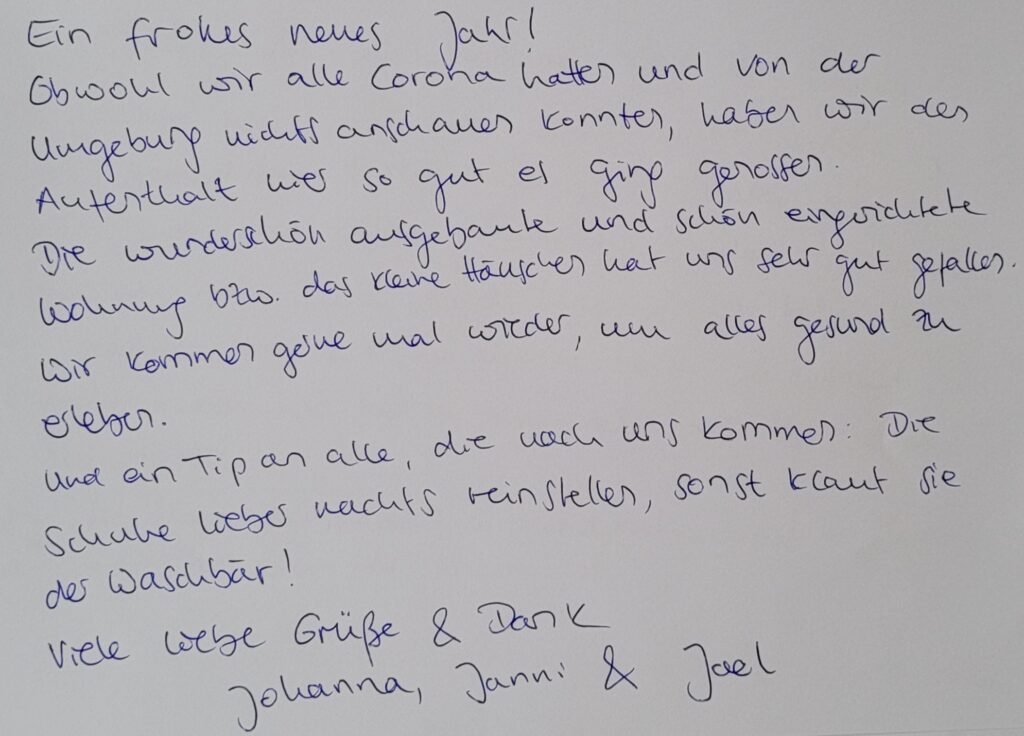 Ein frohes neues Jahr!
Obwohl wir alle Corona hatten und von der
Umgebung nichts anschauen konnten, haben wir den
Aufenthalt hier so gut es ging genossen.
Die wunderschön aufgebaute und schön eingerichtete
Wohnung bzw. das kleine Häuschen hat uns sehr gut gefallen.
Wir kommen gerne mal wieder, um alles gesund zu
erleben.
Und ein Tip an alle, die nach uns kommen: Die
Schuhe lieber nachts reinstellen, sonst klaut sie
der Waschbär!
Viele liebe Grüße & Dank
Johanna, Janni & Jael